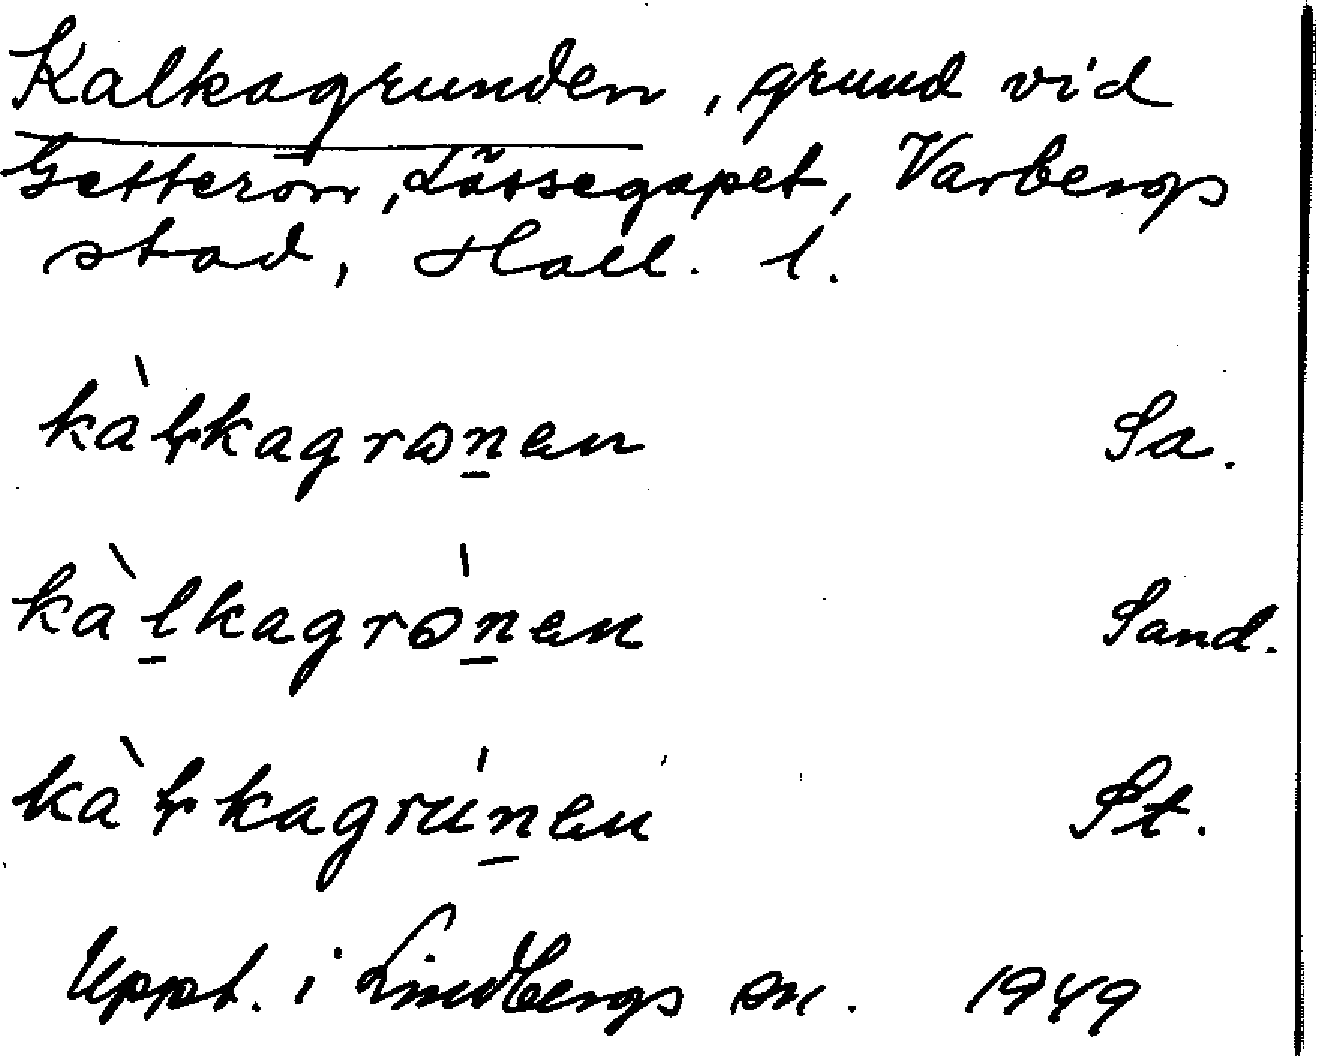 Kalkagrunden, grund vid
Getterön, Låssegapet, Varbergs
stad, Hall. l.
kàɫkagrønen Sa.
kàlkagrònen Sand.
kàɫkagrúnen St.
Uppt. i Lindbergs sn. 1949